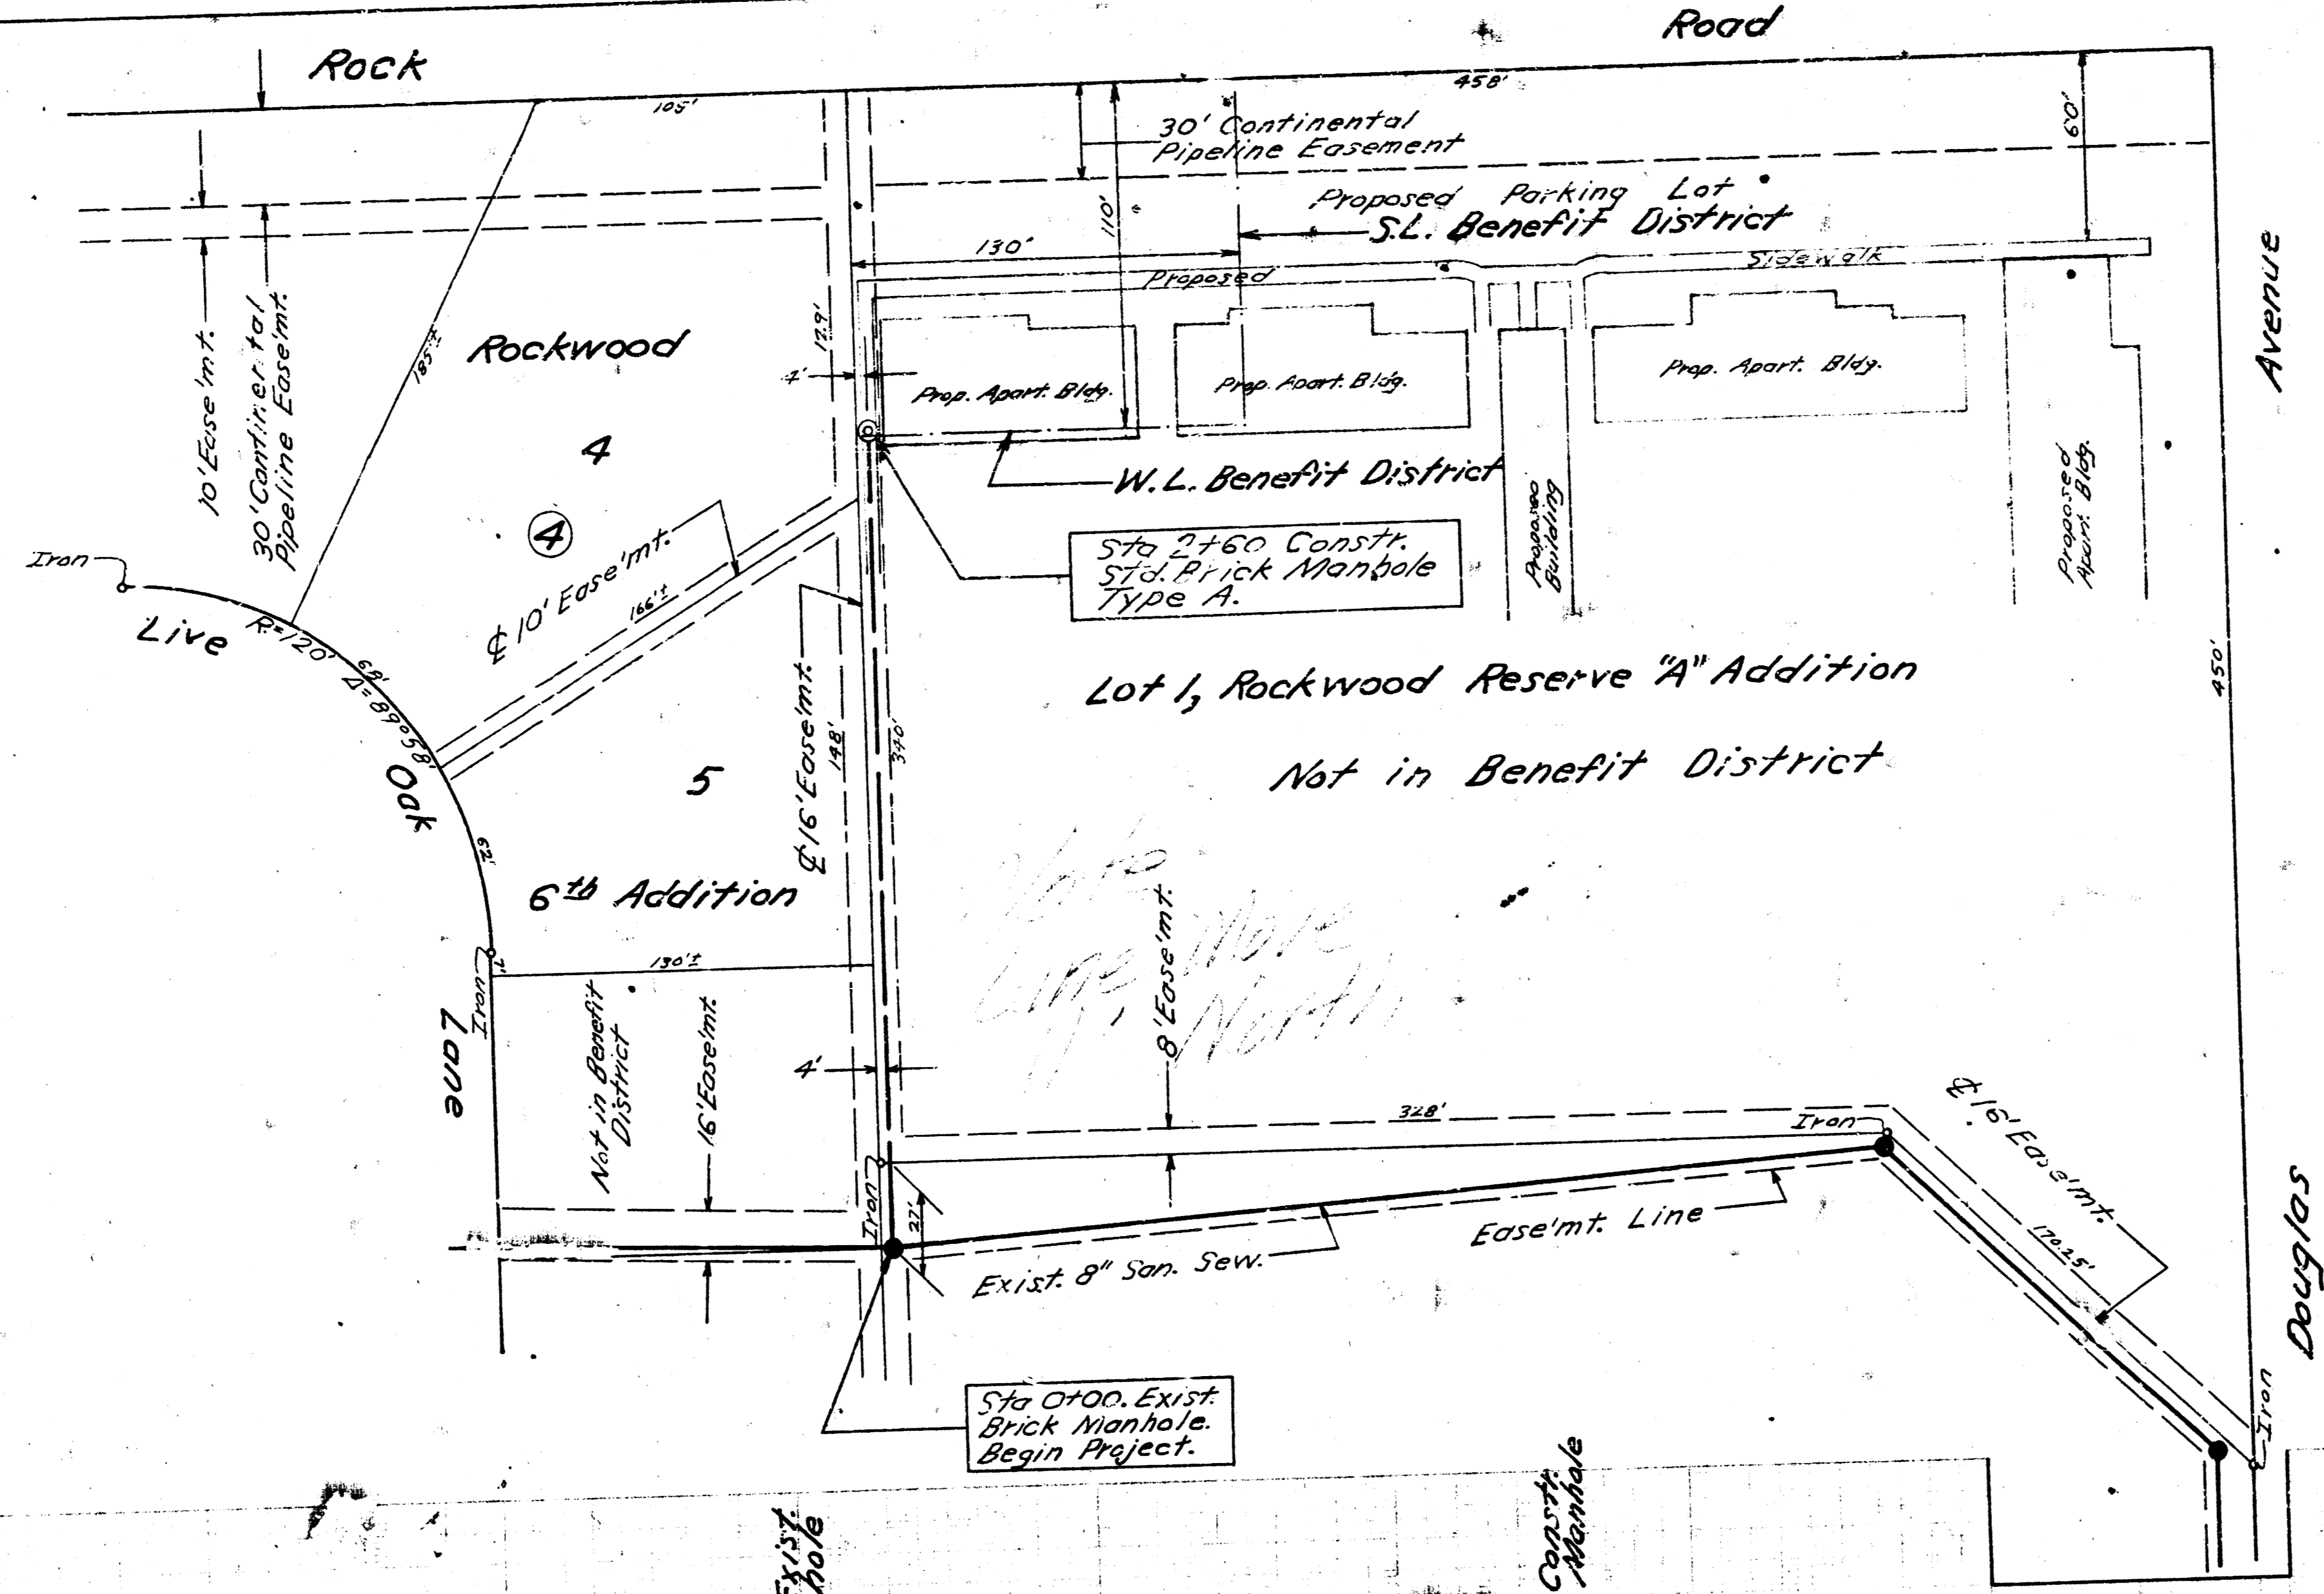 Rock
Road
105'
458'
60'
30' Continental
Pipeline Easement
Proposed Parking Lot
S.L. Benefit District
110'
130'
Proposed
Sidewalk
Avenue
10' Ease'mt.
30' Continental
Pipeline Ease'mt.
185'±
Rockwood
129'
4'
Prop. Apart. Bldg.
Prop. Apart. Bldg.
Prop. Apart. Bldg.
4
4
W.L. Benefit District
Proposed
Building
Proposed
Apart. Bldg.
℄ 10' Ease'mt.
166'±
Sta 2+60 Constr.
Std. Brick Manhole
Type A.
Iron
Live
R=120'
69'
Δ=68°58'
Oak
62'
℄ 16' Ease'mt.
148'
340'
450'
Lot 1, Rockwood Reserve "A" Addition
Not in Benefit District
5
6th Addition
Note
Line Move
1' North
8' Ease'mt.
130'±
7'
Iron
Lane
Not in Benefit
District
16' Ease'mt.
4'
328'
Iron
℄ 16' Ease'mt.
170.25'
Iron
27'
Exist. 8" San. Sew.
Ease'mt. Line
Douglas
Iron
Sta 0+00. Exist.
Brick Manhole.
Begin Project.
Exist.
hole
Constr.
Manhole